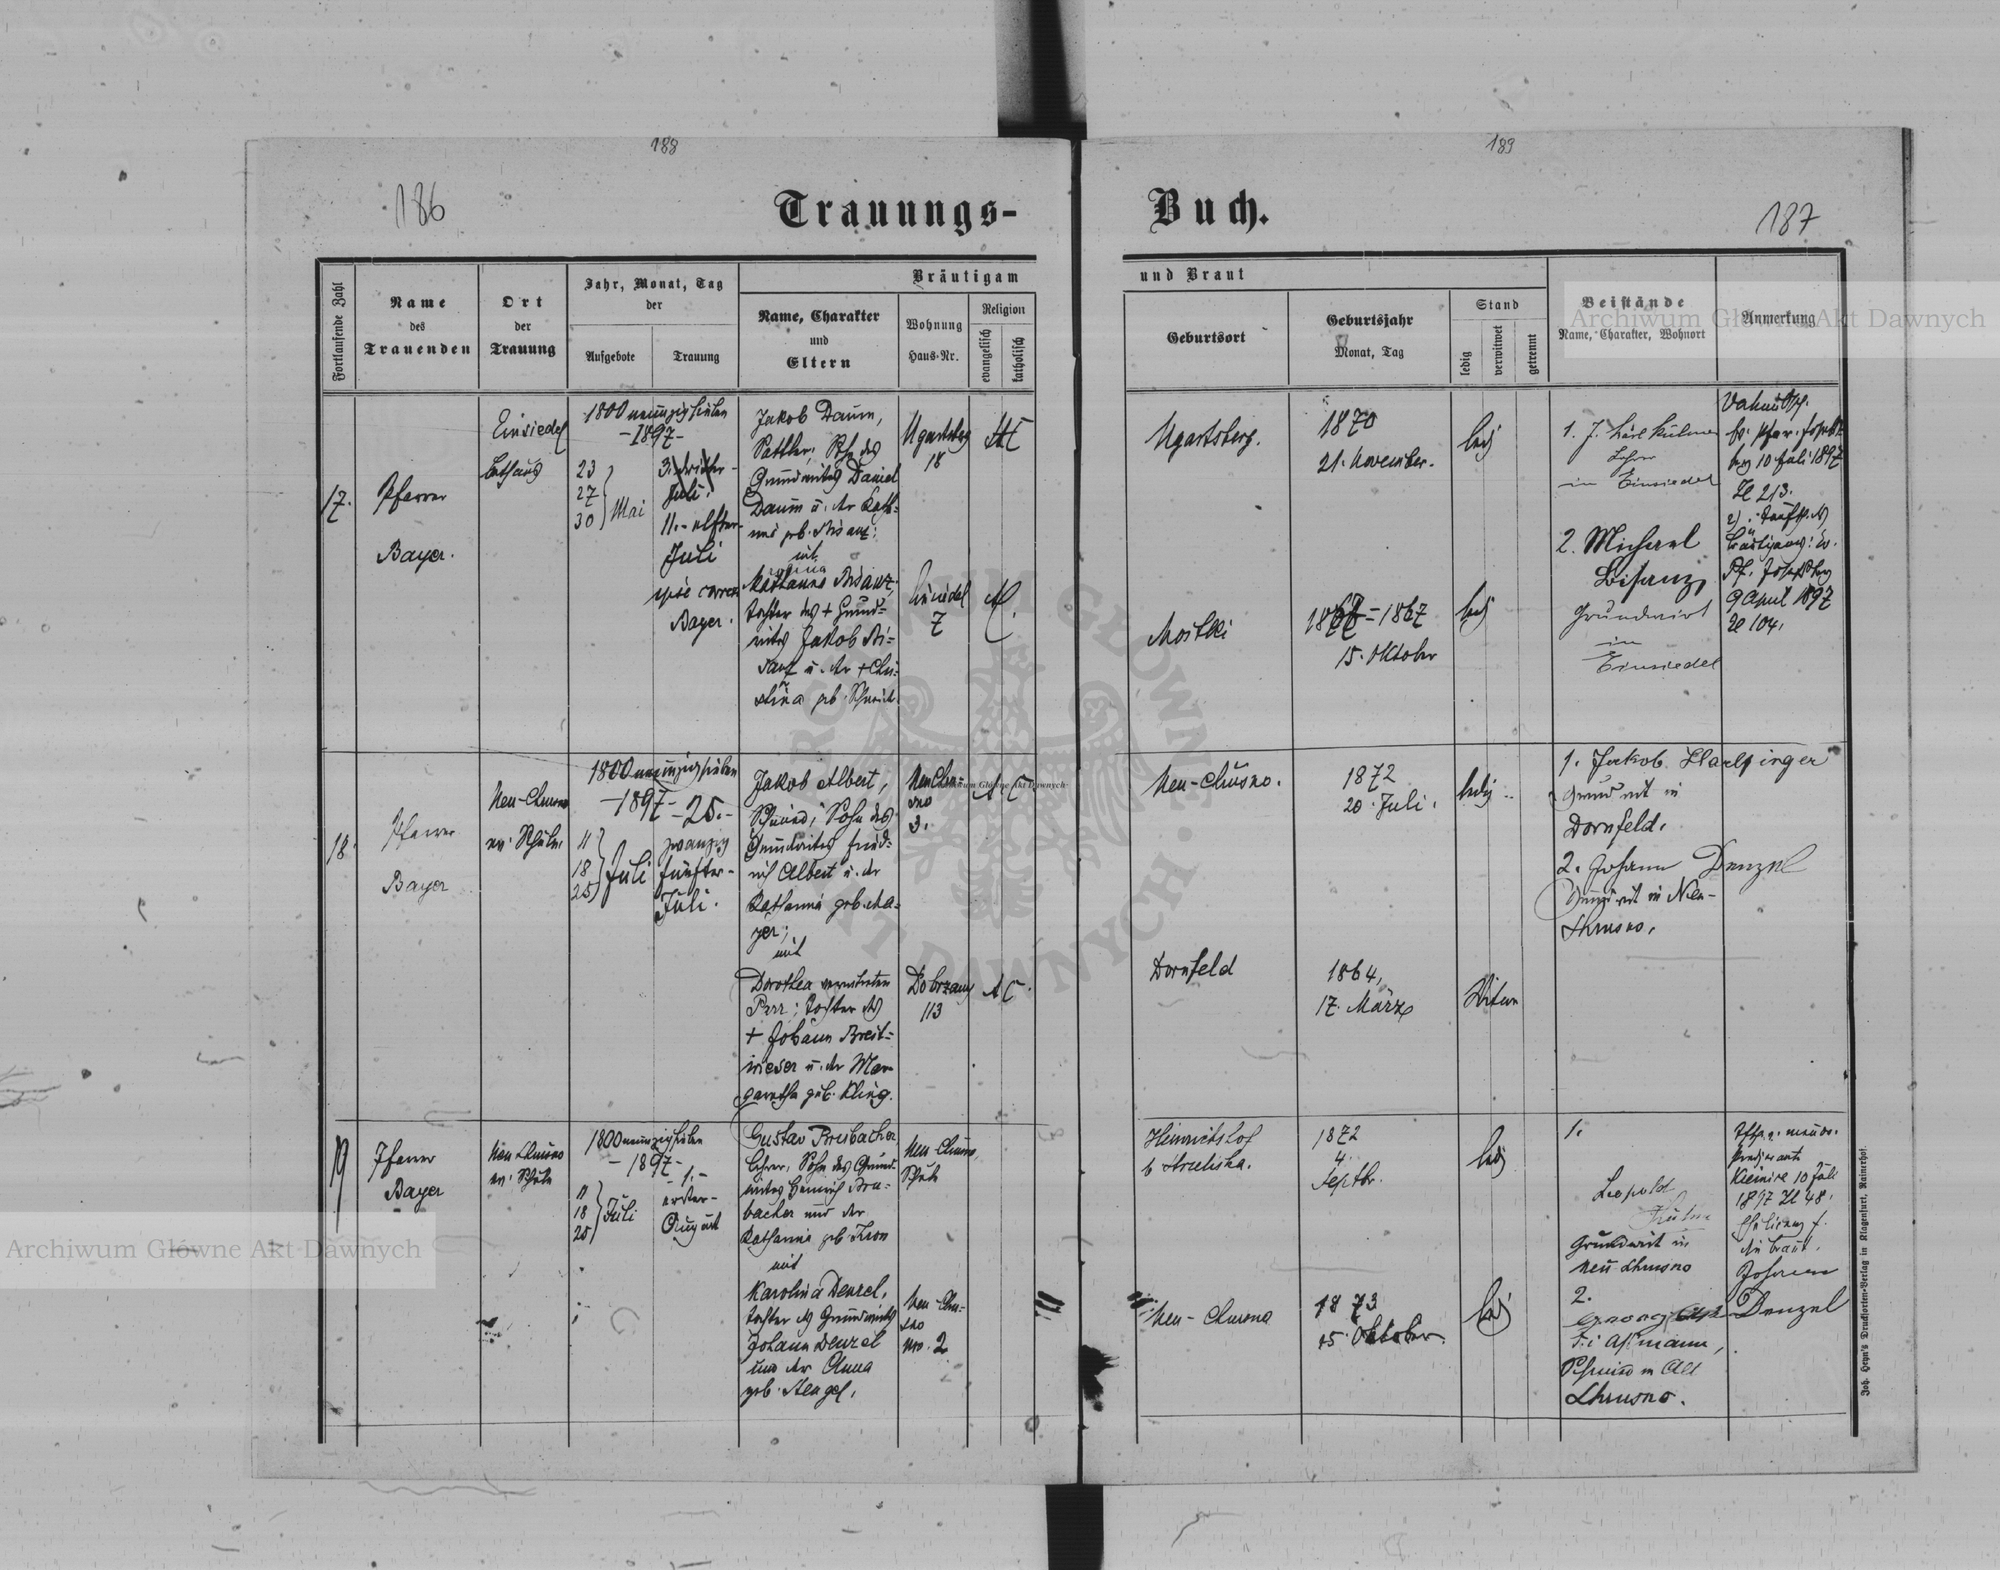 188
189
186
187
Trauungs-
Buch.
Fortlaufende Zahl
Name
des
Trauenden
Ort
der
Trauung
Jahr, Monat, Tag
der
Aufgebote
Trauung
Bräutigam
und Braut
Name, Charakter
und
Eltern
Wohnung
Haus-Nr.
Religion
evangelisch
katholisch
Geburtsort
Geburtsjahr
Monat, Tag
Stand
ledig
verwitwet
getrennt
Beistände
Name, Charakter, Wohnort
Anmerkung
Archiwum Główne Akt Dawnych
17.
Pfarrer
Bayer.
Einsiedel
Bethaus
1800 neunzig sieben
-1897-
23
27
30
Mai
3. dritter
Juli.
11. - elfter-
Juli
Bayer.
Jakob Daum,
Sattler, Sohn des
Grundwirtes Daniel
Daum u. der Kath-
mit
Tochter des + Grund-
wirtes Jakob Bi-
sanz u. der + Chri-
stina geb.
Ugartsberg
18
AC
Einsiedel
7
AC.
Ugartsberg.
1870
21. November.
led
Mostki
1867
15. Oktober
led
1. J.
Lehrer
in Einsiedel
2. Michael
Bisanz
Grundwirt
in
Einsiedel
10 Juli 1897
Zl 213.
9 April 1897
Zl 104.
18.
Pfarrer
Bayer
Neu-Chrusno
ev. Schule.
1800 neunzig sieben
-1897-
25.-
11
18
25
Juli
zwanzig
fünfter-
Juli.
Jakob Albert,
Schmied, Sohn des
Grundwirtes Fried-
rich Albert u. der
Katharina geb. Ma-
yer;
mit
Dorothea verwitweten
Parr; Tochter des
+ Johann Breit-
wieser u. der Mar-
garetha geb. Kling.
Neu Chru-
sno
3.
AC
Dobrzany
113
AC.
Neu-Chrusno.
1872
20. Juli.
ledig
Dornfeld
1864,
17. März
Witwe
1. Jakob Harlfinger
Grundwirt in
Dornfeld.
2. Johann Denzel
Grundwirt in Neu-
Chrusno.
19
Pfarrer
Bayer
Neu Chrusno
ev. Schule
1800 neunzig sieben
-1897-
11
18
25
Juli
-1.-
erster-
August
Gustav Brubacher,
Lehrer, Sohn des Grund-
wirtes Heinrich Bru-
bacher und der
Katharina geb. Kron
mit
Karolina Denzel,
Tochter des Grundwirtes
Johann Denzel
und der Anna
geb. Stengel.
Neu-Chrusno,
Schule
Neu-Chru-
sno
Nro. 2
Heinrichshof
b Strzeliska.
1872
4.
Septbr.
led
Neu-Chrusno
1873
15. Oktober.
led
1.
Leopold
Grundwirt in
Neu-Chrusno
2.
Georg
Schmied in Alt
Chrusno.
10 Juli
1897 Zl 48.
die Braut.
Johann
Denzel
Joh. Heyn's Druckereien-Verlag in Klagenfurt, Rainerhof.
Archiwum Główne Akt Dawnych